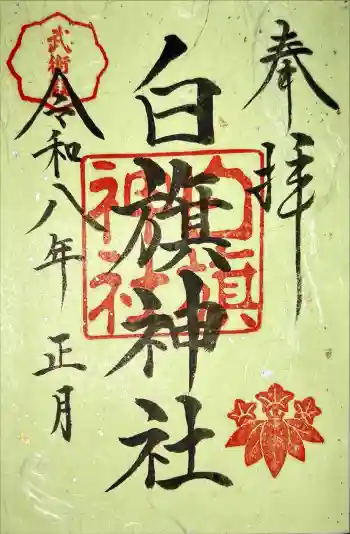 奉拝
白旗神社
令和八年 正月
白旗
神社
武術